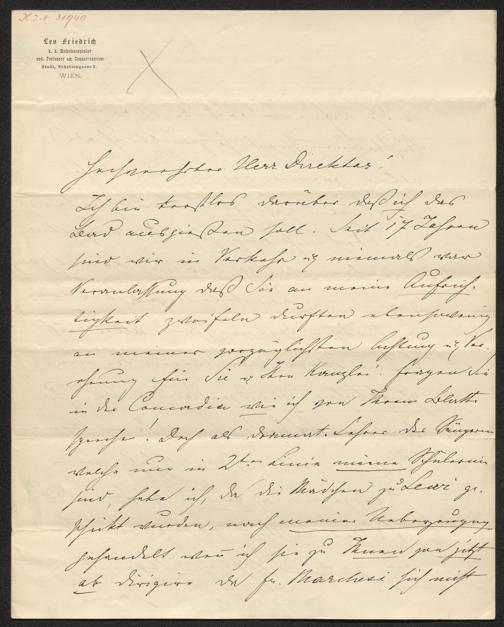 Leo Friedrich
k. k. Hofschauspieler
ord. Professor am Conservatorium
WIEN.
Hochverehrter Herr Direktor!
Ich bin trostlos darüber daß ich das
Bad ausgießen soll. Seit 17 Jahren
sind wir in Verkehr u niemals war
Veranlassung daß Sie an meine Aufrich-
tigkeit zweifeln durften ebensowenig
an meiner vorzüglichsten Achtung u Ver-
ehrung für Sie u Ihre Kanzlei. Fragen Sie
in der Concordia wie ich von Ihrem Blatte
spreche! Doch als dramat. Lehrer der Sängerinen
welche nur in 2ter Linie meine Schülerin
sind, habe ich, da die Mädchen zu Lewi ge-
schickt wurden, nach meiner Ueberzeugung
gehandelt wen ich sie zu Ihnen von jetzt
ab dirigire da fr. Marchesi sich nicht